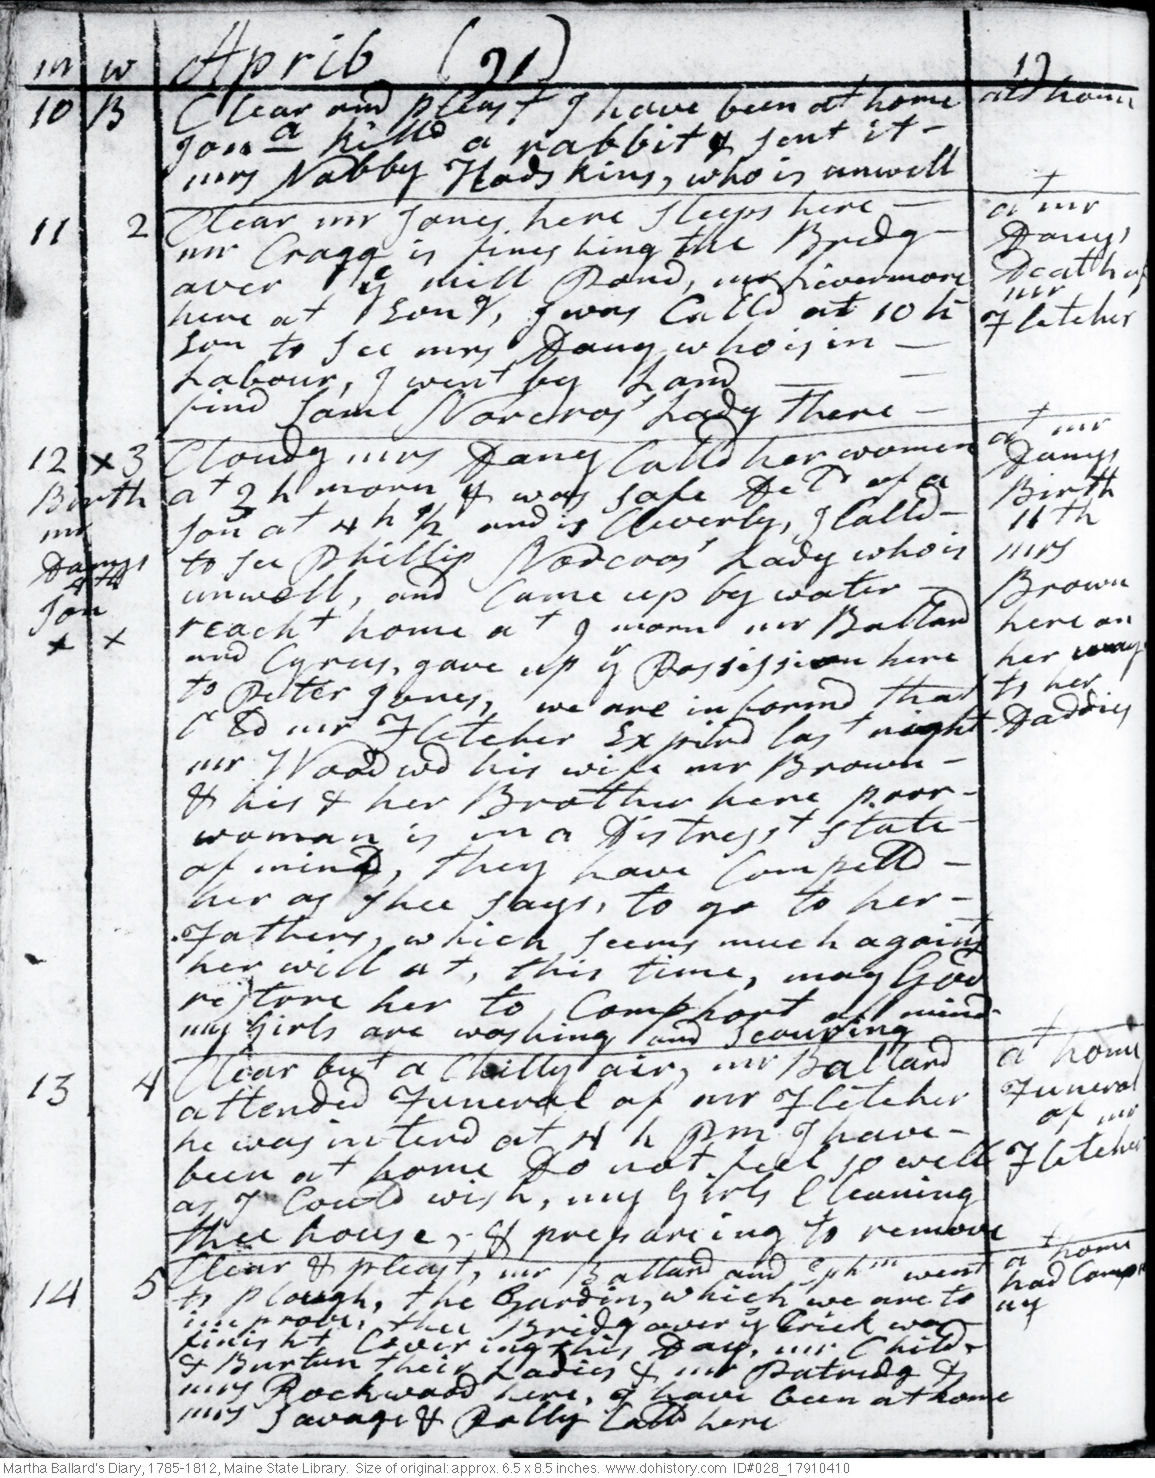 m w April (91) 17
10 B Clear and pleast I have been at home at home
Jona killd a rabbit & sent it
mrs Nabby Hodskins, who is unwell
11 2 Clear mr Jones here sleeps here at mr
mr Cragg is fineshing the Bredg Daveys
over ye mill Pond, mr Livermore Death of
here at Son , I was Calld at 10 h mr
to See mrs Davy who is in Fletcher
Labour, I went by Land
find Saml Norcros' Lady there
12 x 3 Cloudy mrs Davey Calld her women at mr
Birth at 3 h morn & was safe Dd of a Daveys
mr son at 4 h ½ and is Cleverly, I Calld Birth
Daveys to See Phillip Norcros' Lady who is 11th
4th unwell, and Came up by water mrs
Son reacht home at 9 morn mr Ballard Brown
x x and Cyrus, gave up ye Possission here here on
to Peter Jones, we are informd that her way
mr Fletcher Expird last night to her
mr Wood wd his wife mr Brown Daddies
& his & her Brother here poor
woman is in a Distresst state
of mind, they have Compelld
her as shee says, to go to her
Fathers, which seems much against
her will at, this time, may God
restore her to Comphort of mind
my Girls are washing and Scouring
13 4 Clear but a Chilly air, mr Ballard at home
attended Funeral of mr Fletcher Funeral
he was interd at 4 h Pm I have of mr
been at home Do not feel so well Fletcher
as I Could wish, my Girls Cleaning
thee house, & prepareing to remove
14 5 Clear & pleast, mr Ballard and Ephm went at home
to plough, the Gardin, which we are to had Compa
improve, thee Bridg over ye Crick was ny
finisht Covering this Day, mr Child
& Burtun their Ladies & mr Patridg &
mrs Rockwood here, I have been at home
mrs Savage & Polly Calld here
Martha Ballard's Diary, 1785-1812, Maine State Library. Size of original: approx. 6.5 x 8.5 inches. www.dohistory.com ID#028_17910410